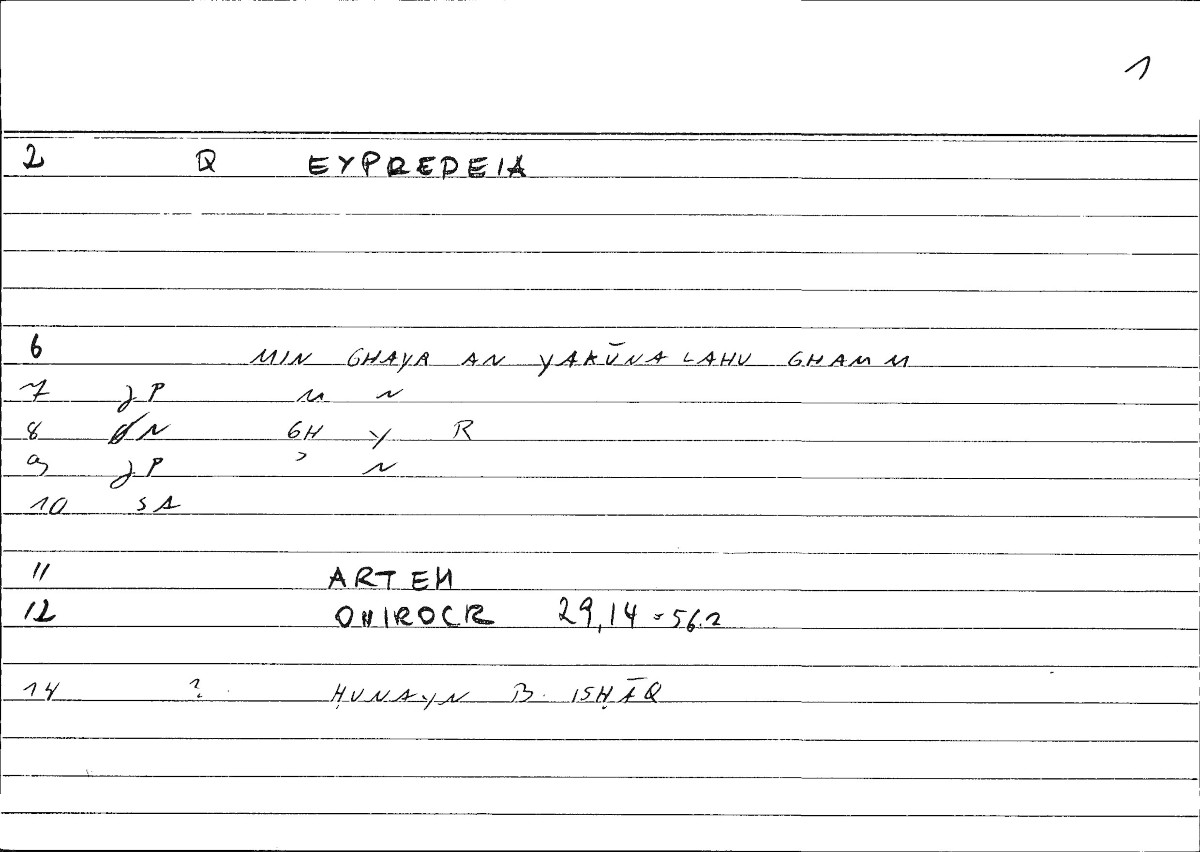 1
2 Q EYPREDEIA
6 MIN GHAYR AN YAKŪNA LAHU GHAMM
7 JP M N
8 N GH Y R
9 JP ʾ N
10 SA
11 ARTEM
12 ONIROCR 29,14 = 56.2
14 ? ḤUNAYN B. ISḤĀQ